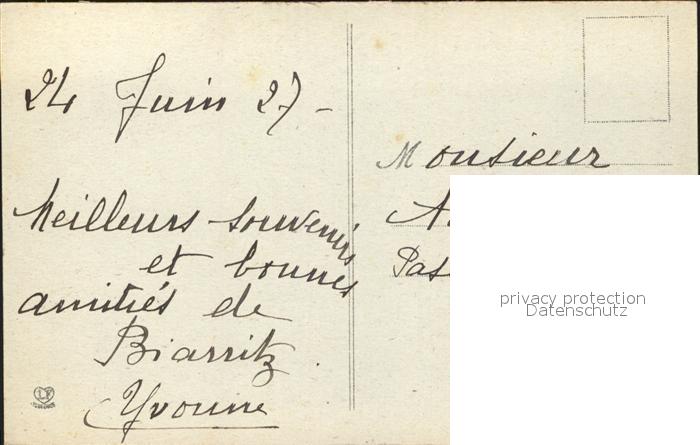 24 Juin 27 -
Meilleurs souvenirs
et bonnes
amitiés de
Biarritz.
Yvonne
Monsieur
A.
Pas
privacy protection
Datenschutz